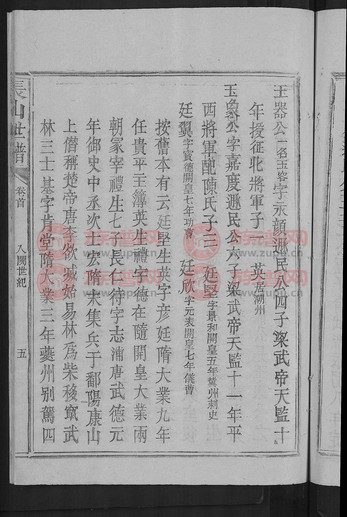 玉器公一名玉㟭字永顔遜民公四子梁武帝天監十
年授征北將軍子一 英居潮州
玉㟭公字嘉度遜民公六子梁武帝天監十一年平
西將軍配陳氏子三 廷堅字景和開皇五年蘄州刺史
廷翼字寳德開皇七年功曹 廷欣字元表開皇七年儀曹
按舊本有云廷堅生英字彦廷隋大業九年
任貴平主簿英生禮字德在隨開皇大業兩
朝冢宰禮生七子長仁待字志浦唐武德元
年御史中丞次士宏隋末集兵于鄱陽康山
上僣稱楚帝唐李欲滅姑易林爲柴移竄武
林三士基字肯堂隋大業三年夔州别駕四
長山世譜
卷首
入閩世紀
五